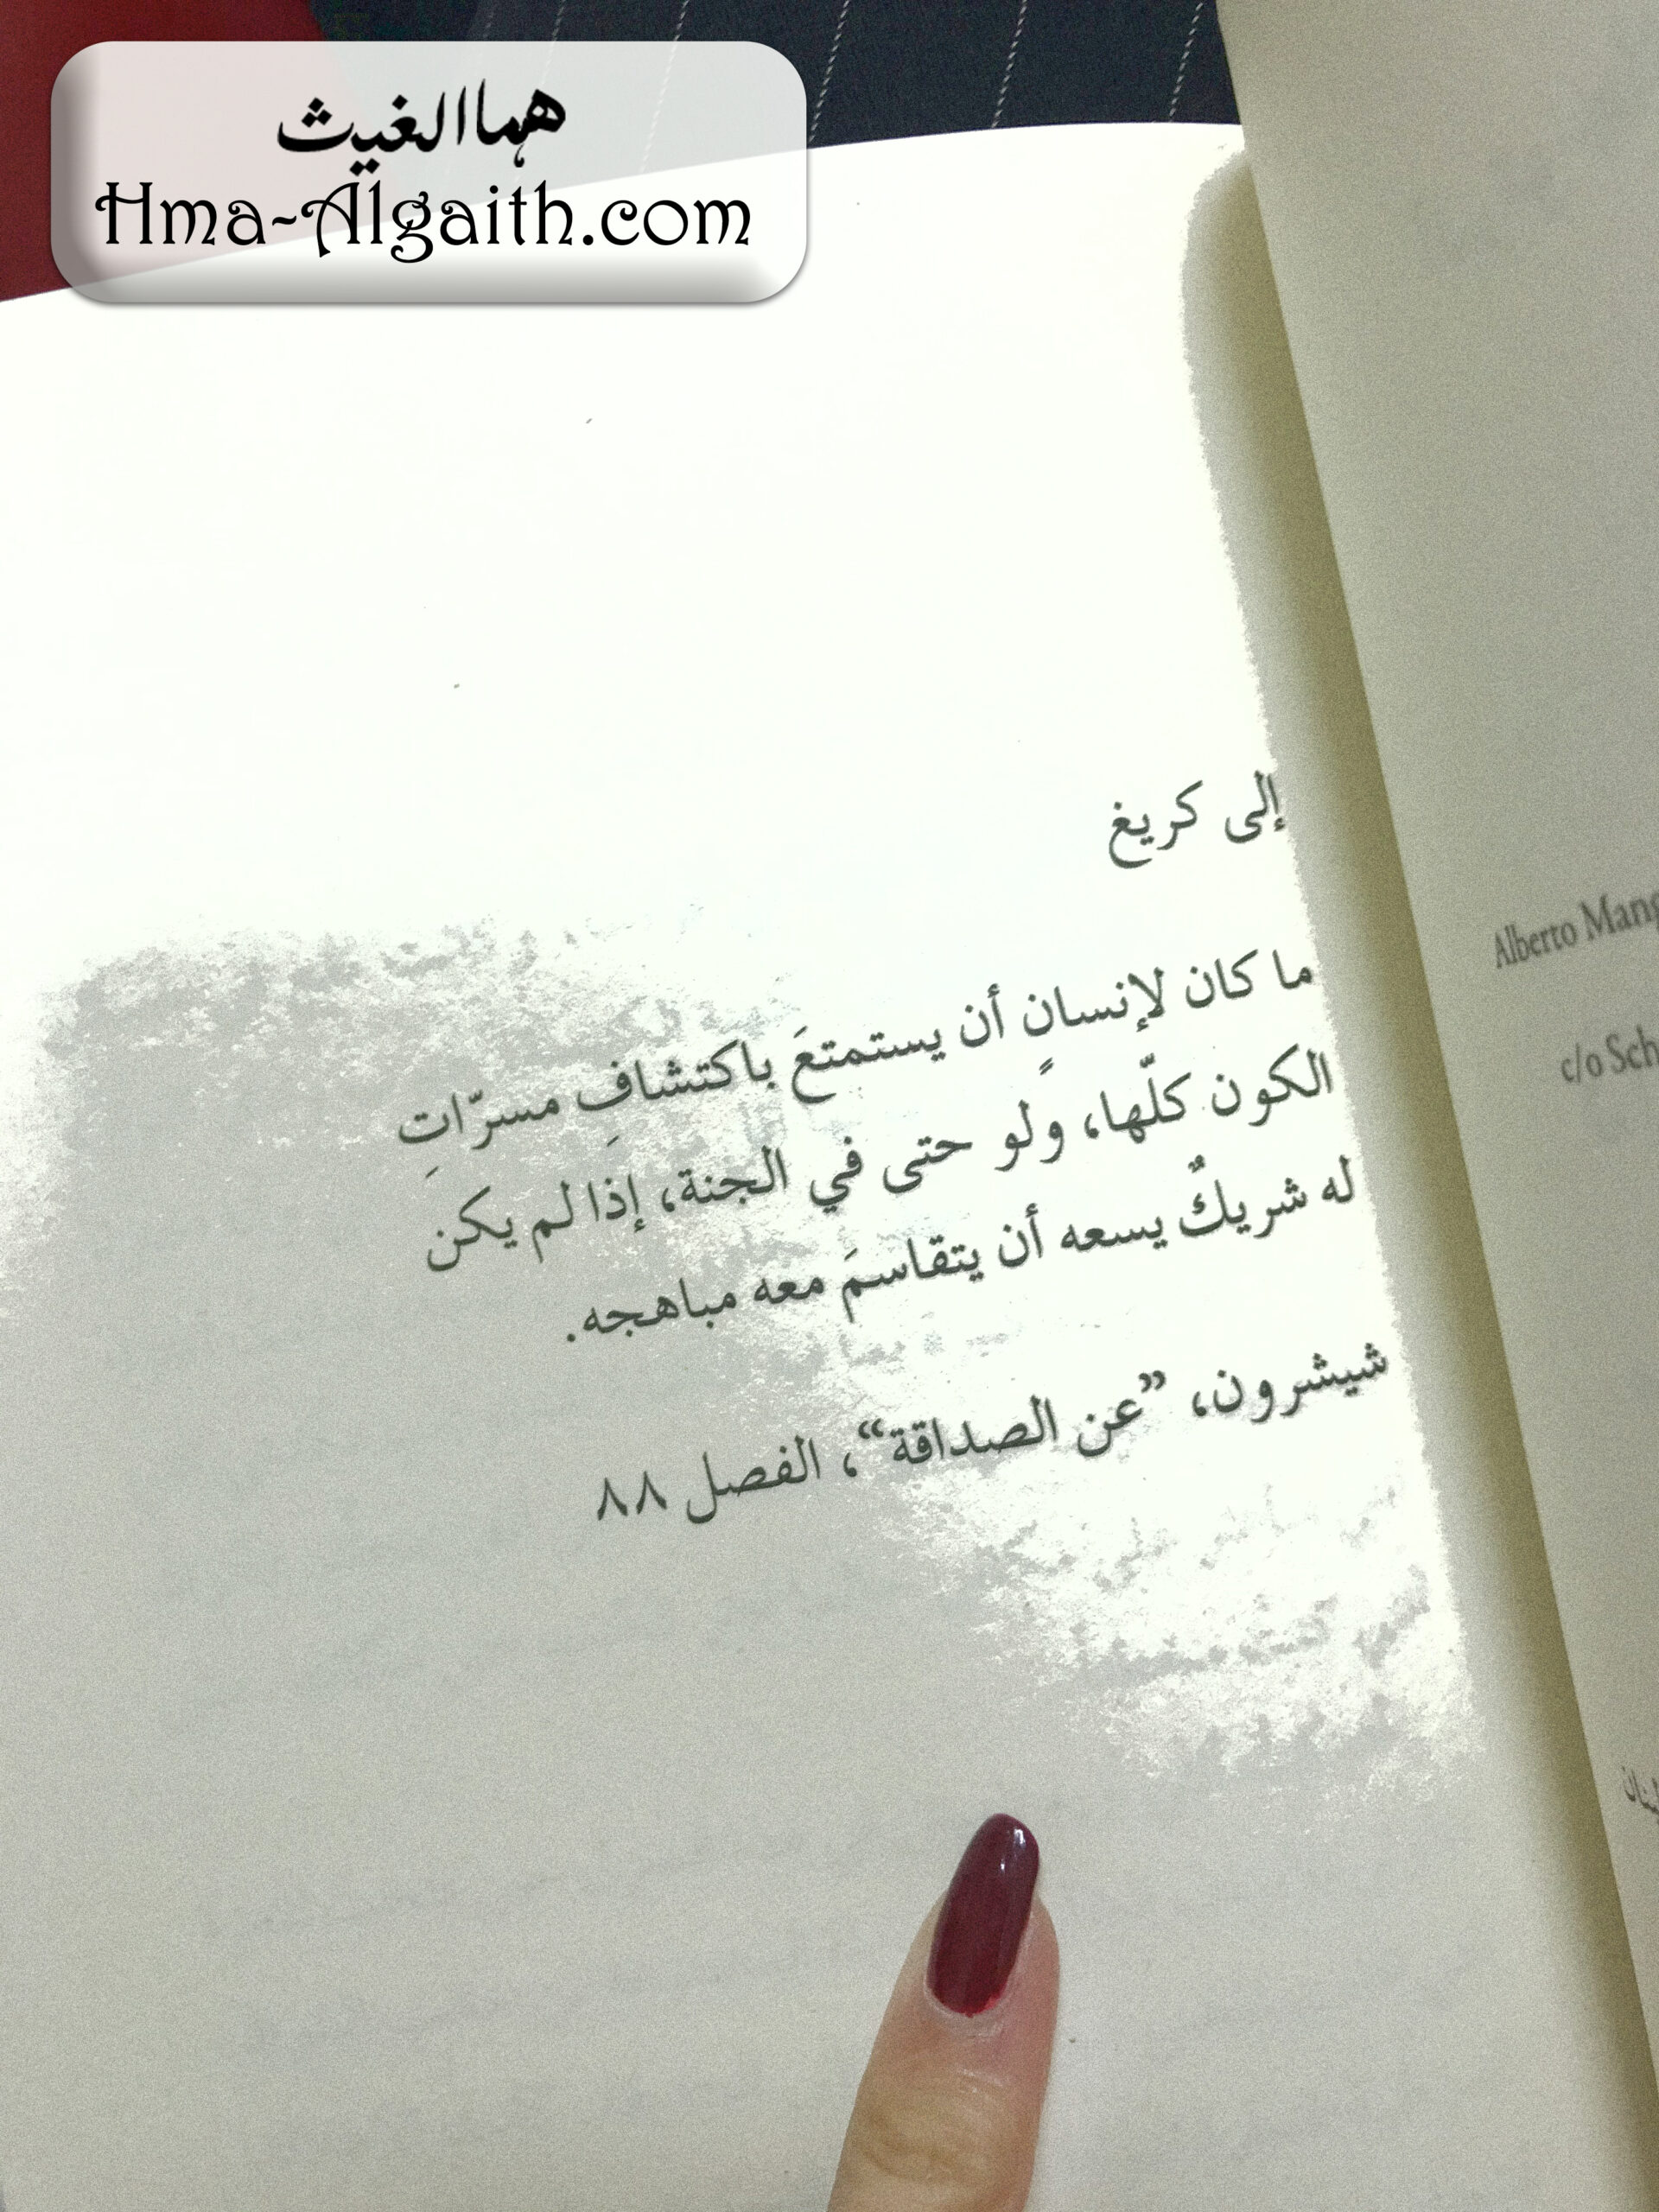 هما الغيث
Hma-Algaith.com
إلى كريغ
ما كان لإنسانٍ أن يستمتعَ باكتشافِ مسرّاتِ
الكون كلّها، ولو حتى في الجنة، إذا لم يكن
له شريكٌ يسعه أن يتقاسمَ معه مباهجه.
شيشرون، ”عن الصداقة“، الفصل ٨٨
Alberto Mang
c/o Sch